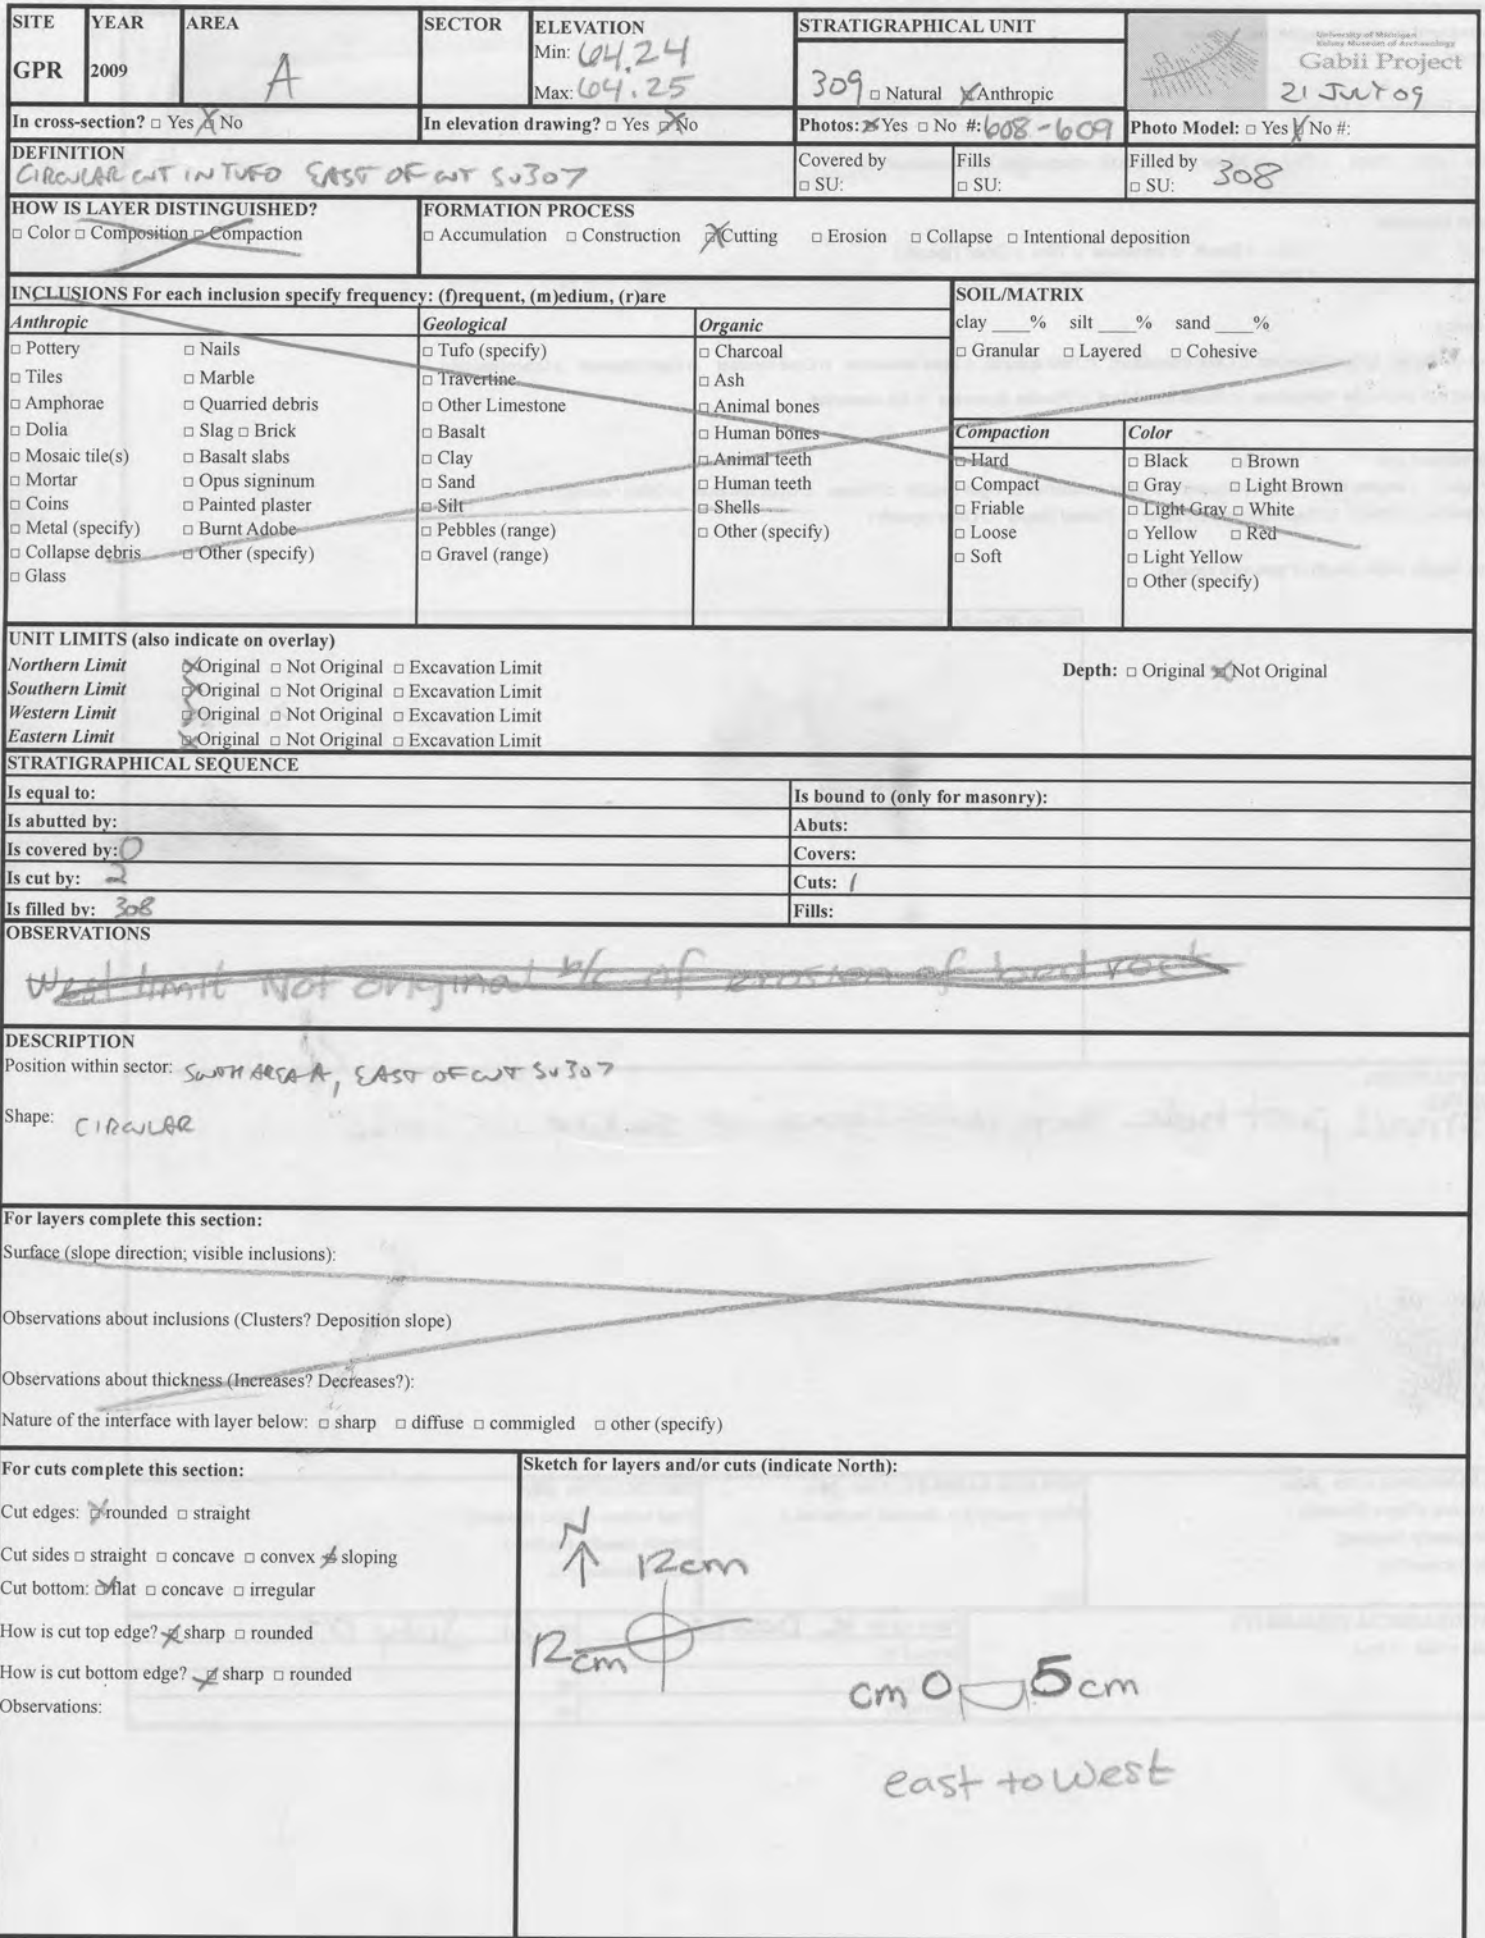 SITE YEAR AREA SECTOR ELEVATION STRATIGRAPHICAL UNIT
University of Michigan
Kelsey Museum of Archaeology
Gabii Project
GPR 2009 A Min: 64.24
Max: 64.25
309 □ Natural ☒ Anthropic
21 JULY 09
In cross-section? □ Yes ☒ No In elevation drawing? □ Yes ☒ No Photos: ☒ Yes □ No #: 608-609 Photo Model: □ Yes ☒ No #:
DEFINITION
CIRCULAR CUT IN TUFO EAST OF CUT SU307
Covered by
□ SU:
Fills
□ SU:
Filled by
□ SU: 308
HOW IS LAYER DISTINGUISHED?
□ Color □ Composition □ Compaction
FORMATION PROCESS
□ Accumulation □ Construction ☒ Cutting □ Erosion □ Collapse □ Intentional deposition
INCLUSIONS For each inclusion specify frequency: (f)requent, (m)edium, (r)are
Anthropic
□ Pottery □ Nails
□ Tiles □ Marble
□ Amphorae □ Quarried debris
□ Dolia □ Slag □ Brick
□ Mosaic tile(s) □ Basalt slabs
□ Mortar □ Opus signinum
□ Coins □ Painted plaster
□ Metal (specify) □ Burnt Adobe
□ Collapse debris □ Other (specify)
□ Glass
Geological
□ Tufo (specify)
□ Travertine
□ Other Limestone
□ Basalt
□ Clay
□ Sand
□ Silt
□ Pebbles (range)
□ Gravel (range)
Organic
□ Charcoal
□ Ash
□ Animal bones
□ Human bones
□ Animal teeth
□ Human teeth
□ Shells
□ Other (specify)
SOIL/MATRIX
clay ____% silt ____% sand ____%
□ Granular □ Layered □ Cohesive
Compaction
□ Hard
□ Compact
□ Friable
□ Loose
□ Soft
Color
□ Black □ Brown
□ Gray □ Light Brown
□ Light Gray □ White
□ Yellow □ Red
□ Light Yellow
□ Other (specify)
UNIT LIMITS (also indicate on overlay)
Northern Limit ☒ Original □ Not Original □ Excavation Limit
Southern Limit ☒ Original □ Not Original □ Excavation Limit
Western Limit ☒ Original □ Not Original □ Excavation Limit
Eastern Limit ☒ Original □ Not Original □ Excavation Limit
Depth: □ Original ☒ Not Original
STRATIGRAPHICAL SEQUENCE
Is equal to: Is bound to (only for masonry):
Is abutted by: Abuts:
Is covered by: 0 Covers:
Is cut by: 2 Cuts: 1
Is filled by: 308 Fills:
OBSERVATIONS
West limit Not original b/c of erosion of bedrock
DESCRIPTION
Position within sector: SOUTH AREA A, EAST OF CUT SU307
Shape: CIRCULAR
For layers complete this section:
Surface (slope direction; visible inclusions):
Observations about inclusions (Clusters? Deposition slope)
Observations about thickness (Increases? Decreases?):
Nature of the interface with layer below: □ sharp □ diffuse □ commigled □ other (specify)
For cuts complete this section:
Cut edges: ☒ rounded □ straight
Cut sides □ straight □ concave □ convex ☒ sloping
Cut bottom: ☒ flat □ concave □ irregular
How is cut top edge? ☒ sharp □ rounded
How is cut bottom edge? ☒ sharp □ rounded
Observations:
Sketch for layers and/or cuts (indicate North):
N
12cm
12cm
cm 0 5cm
east to west